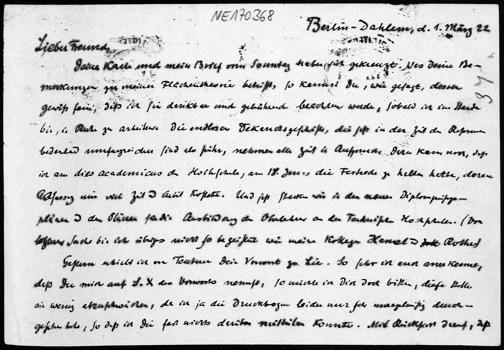 NE170368
Berlin-Dahlem, d. 1. März 22
Lieber Freund,
Deine Karte und mein Brief vom Sonntag haben sich gekreuzt. Was Deine Be-
merkungen zu meinen Flächentheorie betrifft, so kannst Du, wie gesagt, dessen
gewiss sein, daß ich sie dankbar und gebührend beachten werde, sobald ich im Stande
bin, in Ruhe zu arbeiten. Die endlosen Dekanatsgeschäfte, die jetzt in der Zeit der Reformen
bedeutend umfangreicher sind als früher, nehmen alle Zeit in Anspruch. Dazu kam noch, daß
ich am dies academicus der Hochschule, am 18. Januar die Festrede zu halten hatte, deren
Abfassung mir viel Zeit u. Arbeit kostete. Und jetzt stecken wir in den neuen Diplomprüfungs-
plänen u. den Plänen für die Ausbildung der Oberlehrer an den Technischen Hochschulen. (Von
letzterer Sache bin ich übrigens nicht so begeistert wie meine Kollegen Hamel u. Rothe)
Gestern erhielt ich von Teubner Dein Vorwort zu Lie. So sehr ich auch anerkenne,
daß Du mich auf S. X des Vorworts nennst, so möchte ich Dich doch bitten, diese Stelle
ein wenig abzuschwächen, da ich ja die Druckbogen leider nur sehr mangelhaft durch-
gesehen habe, so daß ich Dir fast nichts darüber mitteilen konnte. Mit Rücksicht darauf, daß